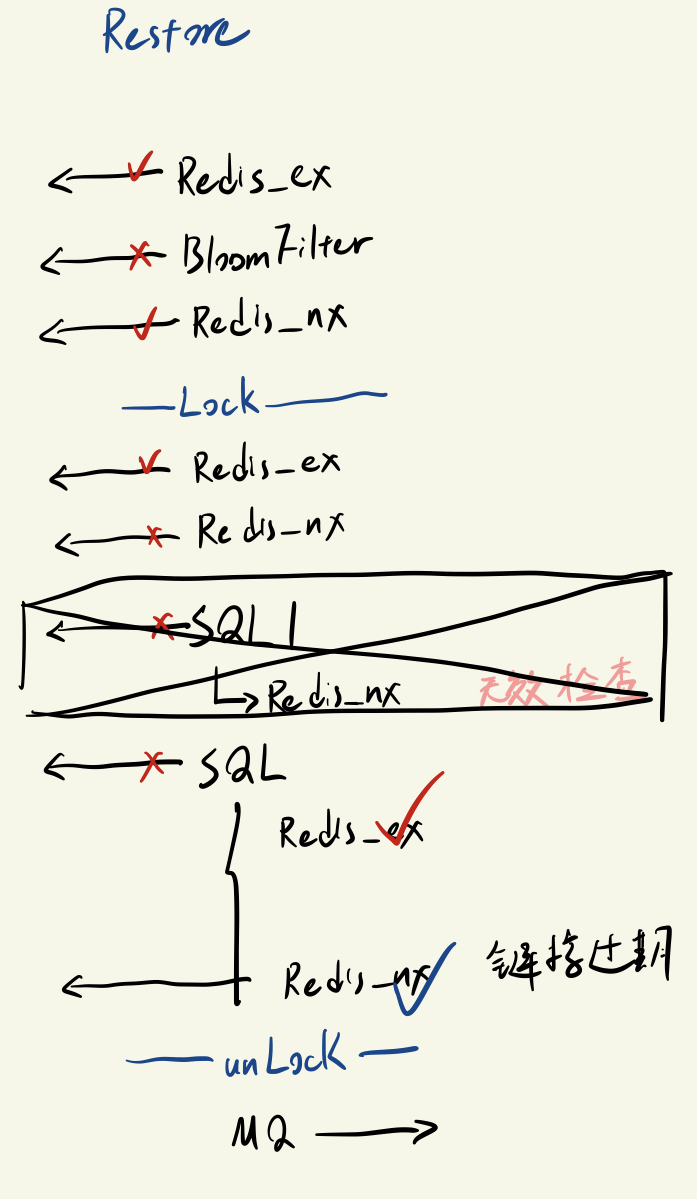 Restore
Redis_ex
BloomFilter
Redis_nx
Lock
Redis_ex
Redis_nx
SQL 1
Redis_nx
无效检查
SQL
Redis_ex
Redis_nx
链接过期
unLock
MQ